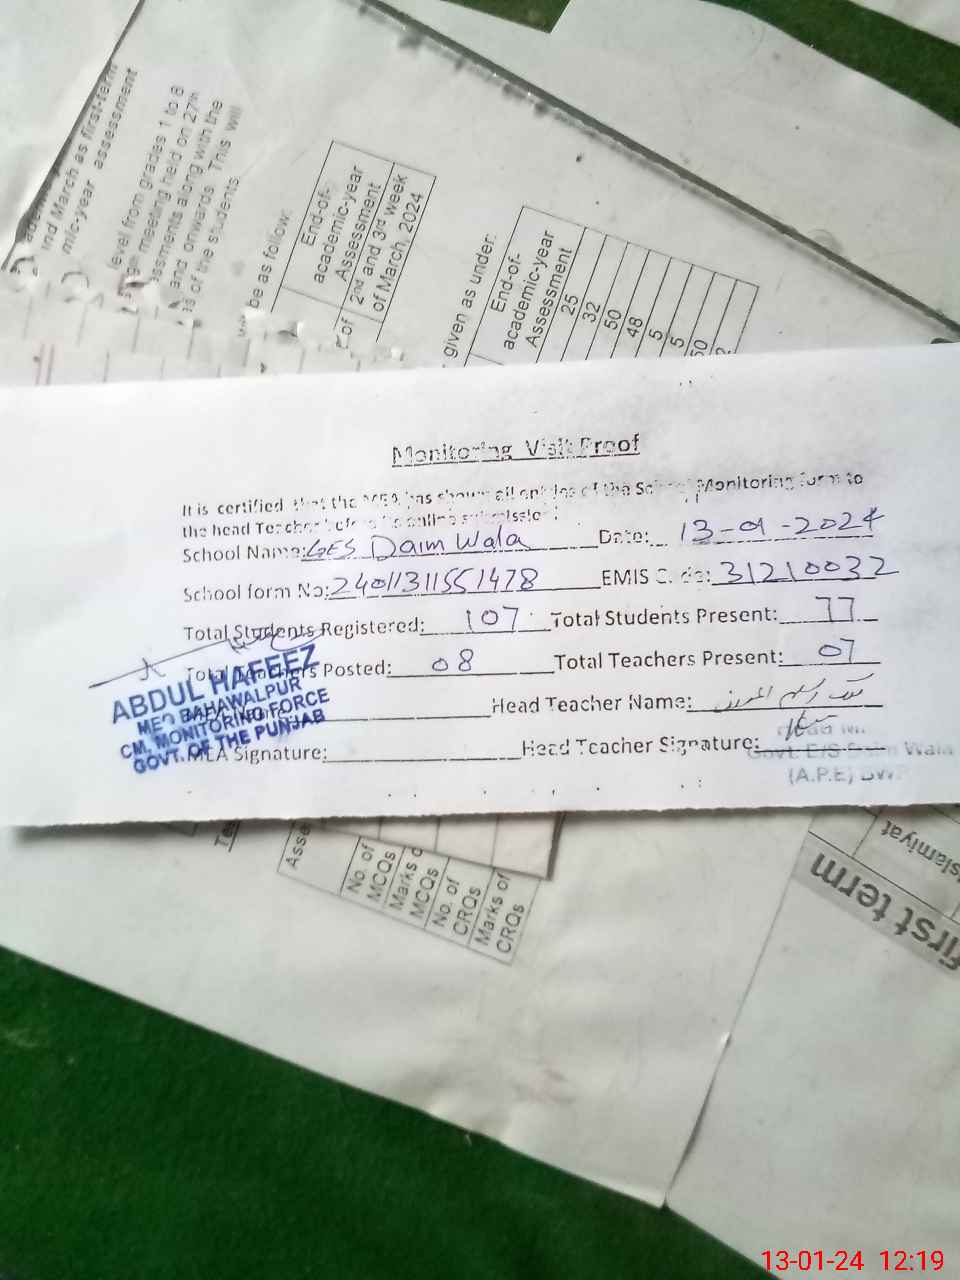 ind March as first-term
mid-year assessment
level from grades 1 to 8
meeting held on 27th
assments along with the
and onwards This will
of the students.
be as follow:
End-of-
academic-year
Assessment
2nd and 3rd week
of March, 2024
given as under:
End-of-
academic-year
Assessment
25
32
50
48
5
5
50
Monitoring Visit Proof
It is certified that the MEA has shown all entries of the School Monitoring form to
the head Teacher before online submission.
School Name: GES Daim Wala Date: 13-01-2024
School form No: 24011311551478 EMIS Code: 31210032
Total Students Registered: 107 Total Students Present: 77
Total Teachers Posted: 08 Total Teachers Present: 07
Head Teacher Name:
MEA Signature: Head Teacher Signature:
ABDUL HAFEEZ
MEO BAHAWALPUR
CM, MONITORING FORCE
GOVT. OF THE PUNJAB
Govt. E/S Daim Wala
(A.P.E) BWP
Asse
No. of
MCQs
Marks o
MCQs
No. of
CRQs
Marks of
CRQs
Islamiyat
first term
13-01-24 12:19